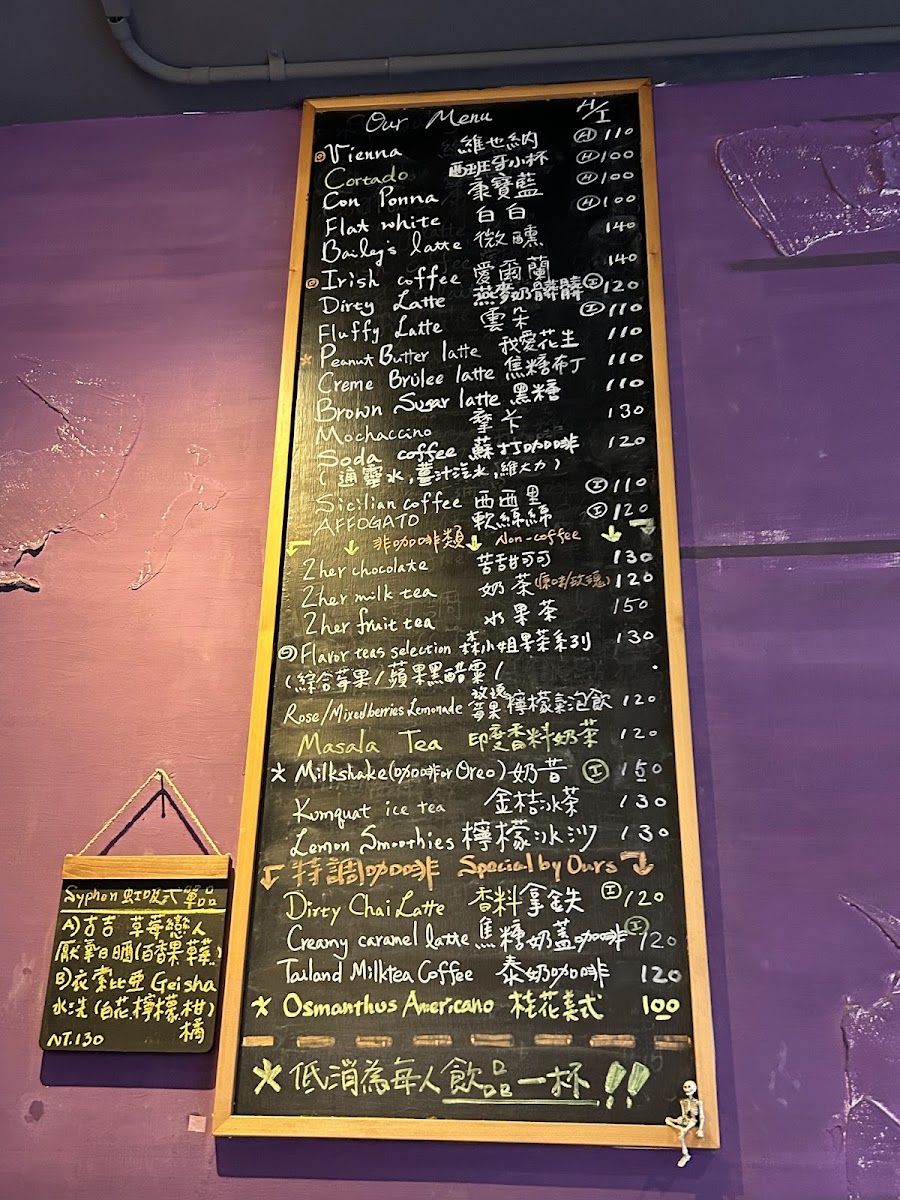 Our Menu H/I
Vienna 維也納 Ⓗ 110
Cortado 西班牙小杯 Ⓗ 100
Con Ponna 康寶藍 Ⓗ 100
Flat white 白白 Ⓗ 100
Bailey's latte 微醺 140
Irish coffee 愛爾蘭 140
Dirty Latte 燕麥奶髒髒 Ⓘ 120
Fluffy Latte 雲朵 Ⓘ 110
* Peanut Butter latte 我愛花生 110
Creme Brülee latte 焦糖布丁 110
Brown Sugar latte 黑糖 110
Mochaccino 摩卡 130
Soda coffee 蘇打咖啡 120
(通靈水,薑汁汽水,維大力)
Sicilian coffee 西西里 Ⓘ 110
AFFOGATO 軟綿綿 Ⓘ 120
非咖啡類 Non-coffee
2her chocolate 苦甜可可 130
2her milk tea 奶茶(原味/玫瑰) 120
2her fruit tea 水果茶 150
Flavor teas selection 森小姐果茶系列 130
(綜合莓果/蘋果黑醋粟/
Rose/Mixedberries Lemonade 玫瑰莓果檸檬氣泡飲 120
Masala Tea 印度香料奶茶 120
* Milkshake(咖啡or Oreo)奶昔 Ⓘ 150
Kumquat ice tea 金桔冰茶 130
Lemon Smoothies 檸檬冰沙 130
特調咖啡 Special by Ours
Dirty Chai Latte 香料拿鐵 Ⓘ 120
Creamy caramel latte 焦糖奶蓋咖啡 Ⓘ 120
Tailand Milktea Coffee 泰奶咖啡 120
* Osmanthus Americano 桂花美式 100
* 低消為每人飲品一杯!!
Syphon 虹吸式單品
A)古吉 草莓戀人
厭氧日曬(百香果.草莓)
B)衣索比亞 Geisha
水洗(白花.檸檬.柑橘)
NT.130